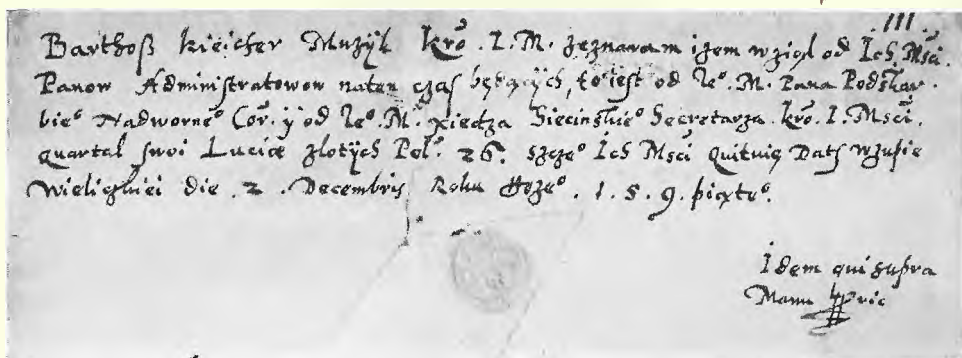 III.
Barthoß kieicher Muzÿk kro͂. I. M. zeznawam izem wziął od Ich Mści.
Panow Administratorow naten czas będących, to iest od Ieᵒ. M. Pana Podskar-
bieᵒ Nadworneᵒ Cor. ÿ od Ieᵒ. M. xiedza Siecinskieᵒ Secretarza. kro͂. I. Mści.
quartal swoi Luciæ zlotÿch Pol. 26. Ich Mści quituię Datᶻ w zupie
Wieliczkiei die . 2 . Decembris Roku . 1. 5. 9. piąteᵒ.
Idem qui supra
Manu